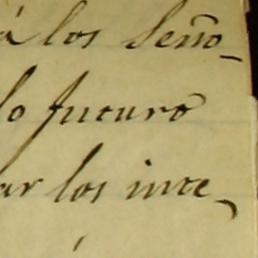 á los Seño-
lo futuro
ar los inte-